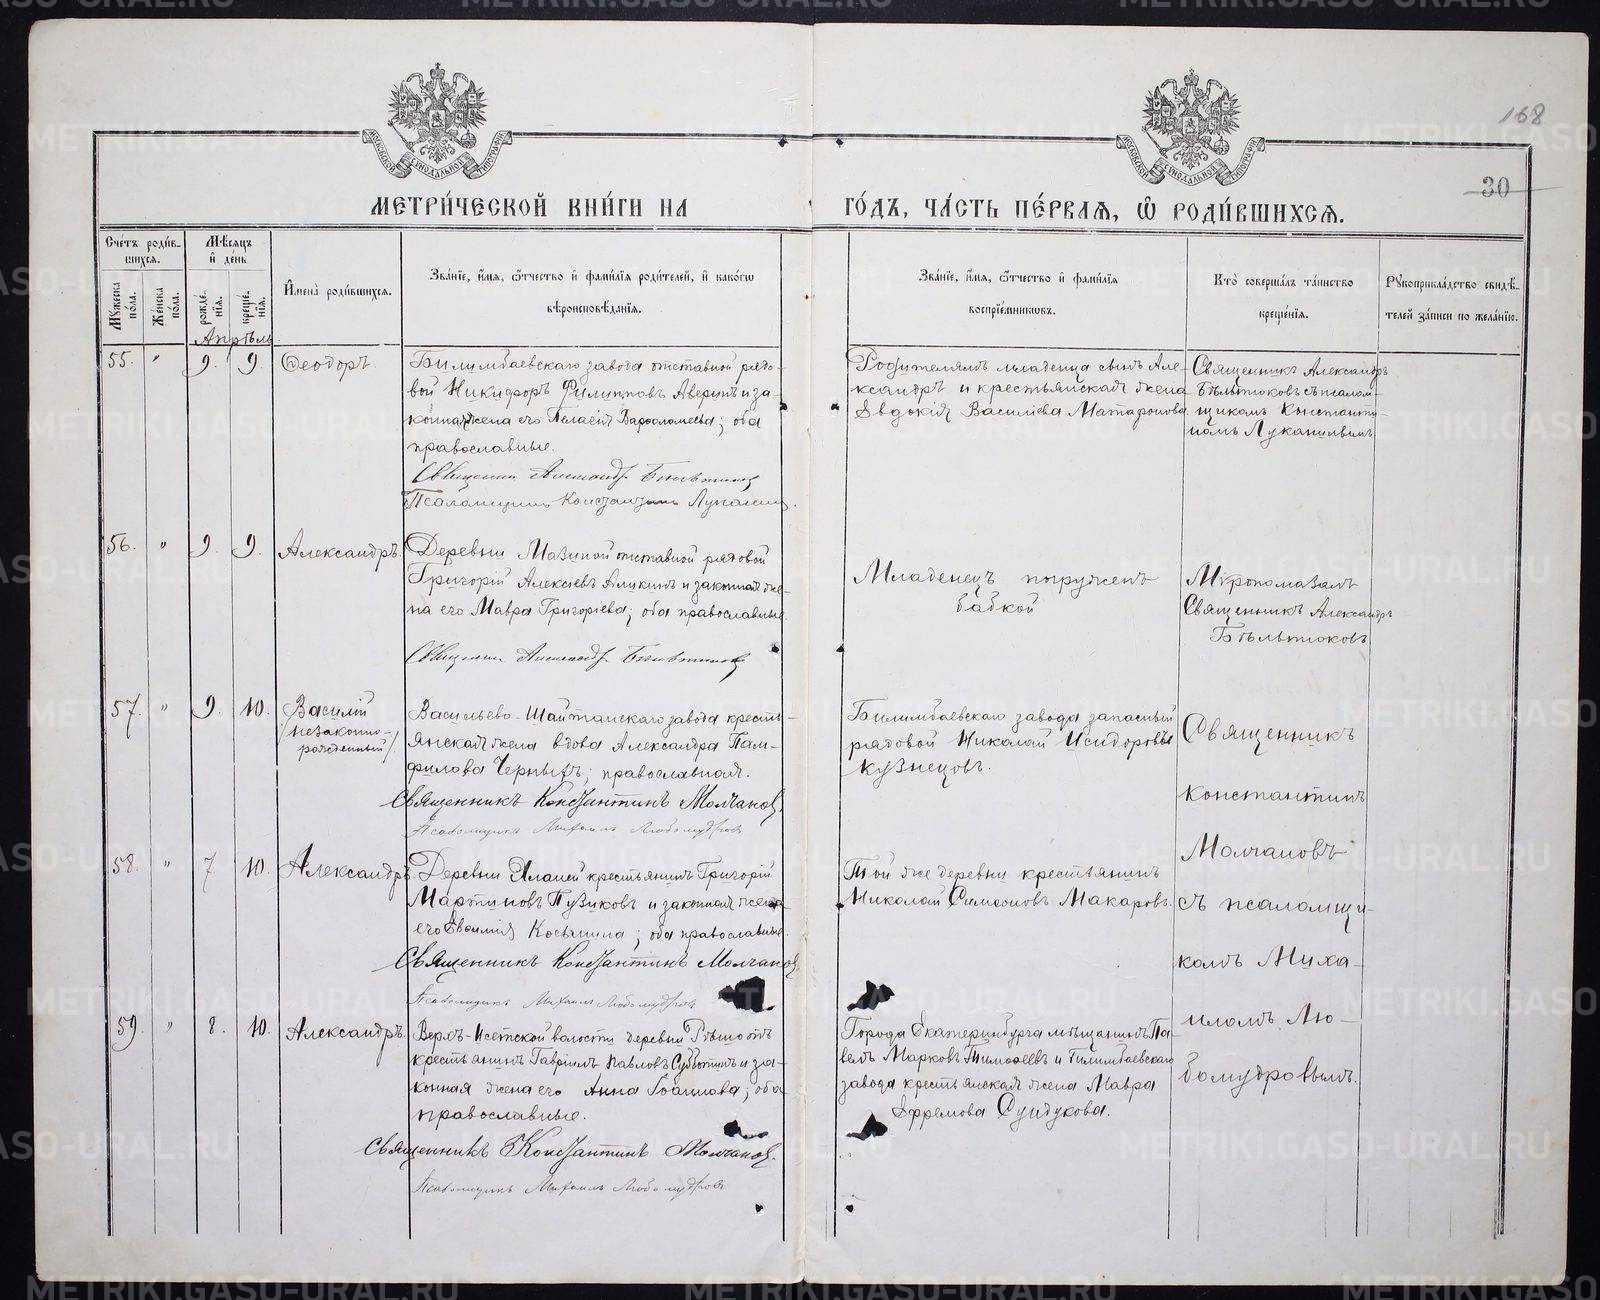 168
30
МОСКОВСКОЙ СѴНОДАЛЬНОЙ ТИПОГРАФІИ
МОСКОВСКОЙ СѴНОДАЛЬНОЙ ТИПОГРАФІИ
МЕТРИ́ЧЕСКОЙ КНИ́ГИ НА
ГО́ДЪ, ЧА́СТЬ ПЕ́РВАЯ, Ѡ҆ РОДИ́ВШИХСЯ.
Сче́тъ роди́в-
шихся.
Мꙋжеска по́ла.
Же́нска по́ла.
Мѣ́сяцъ и҆ де́нь
рожде́-нія.
креще́-нія.
И҆мена̀ роди́вшихся.
Зва́ніе, и҆́мя, ѻ҆́тчество и҆ фами́лія роди́телей, и҆ како́гѡ
вѣроисповѣ́данія.
Зва́ніе, и҆́мя, ѻ҆́тчество и҆ фами́лія
воспріе́мниковъ.
Кто̀ соверша́лъ та́инство
креще́нія.
Рꙋкоприкла́дство свидѣ́-
телей за́писи по жела́нію.
Апрѣль
55. " 9. 9. Ѳеодоръ.
Билимбаевскаго завода отставной рядо-
вой Никифоръ Филипповъ Аверинъ и за-
конная жена его Пелагія Варѳоломеева; оба
православные.
Священникъ Александръ Бѣльтюковъ
Псаломщикъ Константинъ Луканинъ.
Родителямъ младенца сынъ Але-
ксандръ и крестьянская жена
Евдокія Василіева Матафонова
Священникъ Александръ
Бѣльтюковъ съ псалом-
щикомъ Константи-
номъ Луканинымъ
56. " 9. 9. Александръ.
Деревни Мазиной отставной рядовой
Григорій Алексѣевъ Аликинъ и законная же-
на его Мавра Григоріева; оба православные
Священникъ Александръ Бѣльтюковъ
Младенецъ погруженъ
бабкой
Мѵропомазалъ
Священникъ Александръ
Бѣльтюковъ
57. " 9. 10. Василій
/незаконно-
рожденный/
Васильево-Шайтанскаго завода кресть-
янская жена вдова Александра Пам-
филова Черныхъ; православная.
Священникъ Константинъ Молчановъ
Псаломщикъ Михаилъ Любомудровъ
Билимбаевскаго завода запасный
рядовой Николай Исидоровъ
Кузнецовъ.
Священникъ
Константинъ
Молчановъ
съ псаломщи-
комъ Миха-
иломъ Лю-
бомудровымъ.
58. " 7. 10. Александръ
Деревни Хламей крестьянинъ Григорій
Мартиновъ Пузиковъ и законная жена
его Евѳимія Косьмина; оба православные
Священникъ Константинъ Молчановъ
Псаломщикъ Михаилъ Любомудровъ
Той же деревни крестьянинъ
Николай Симеоновъ Макаровъ.
59. " 8. 10. Александръ.
Верхъ-Исетской волости деревни Рѣшотъ
крестьянинъ Гавріилъ Павловъ Субботинъ и за-
конная жена его Анна Іоаннова; оба
православные.
Священникъ Константинъ Молчановъ
Псаломщикъ Михаилъ Любомудровъ
Города Екатеринбурга мѣщанинъ Па-
велъ Марковъ Тимоѳеевъ и Билимбаевскаго
завода крестьянская жена Мавра
Ефремова Сундукова.
METRIKI.GASO-URAL.RU